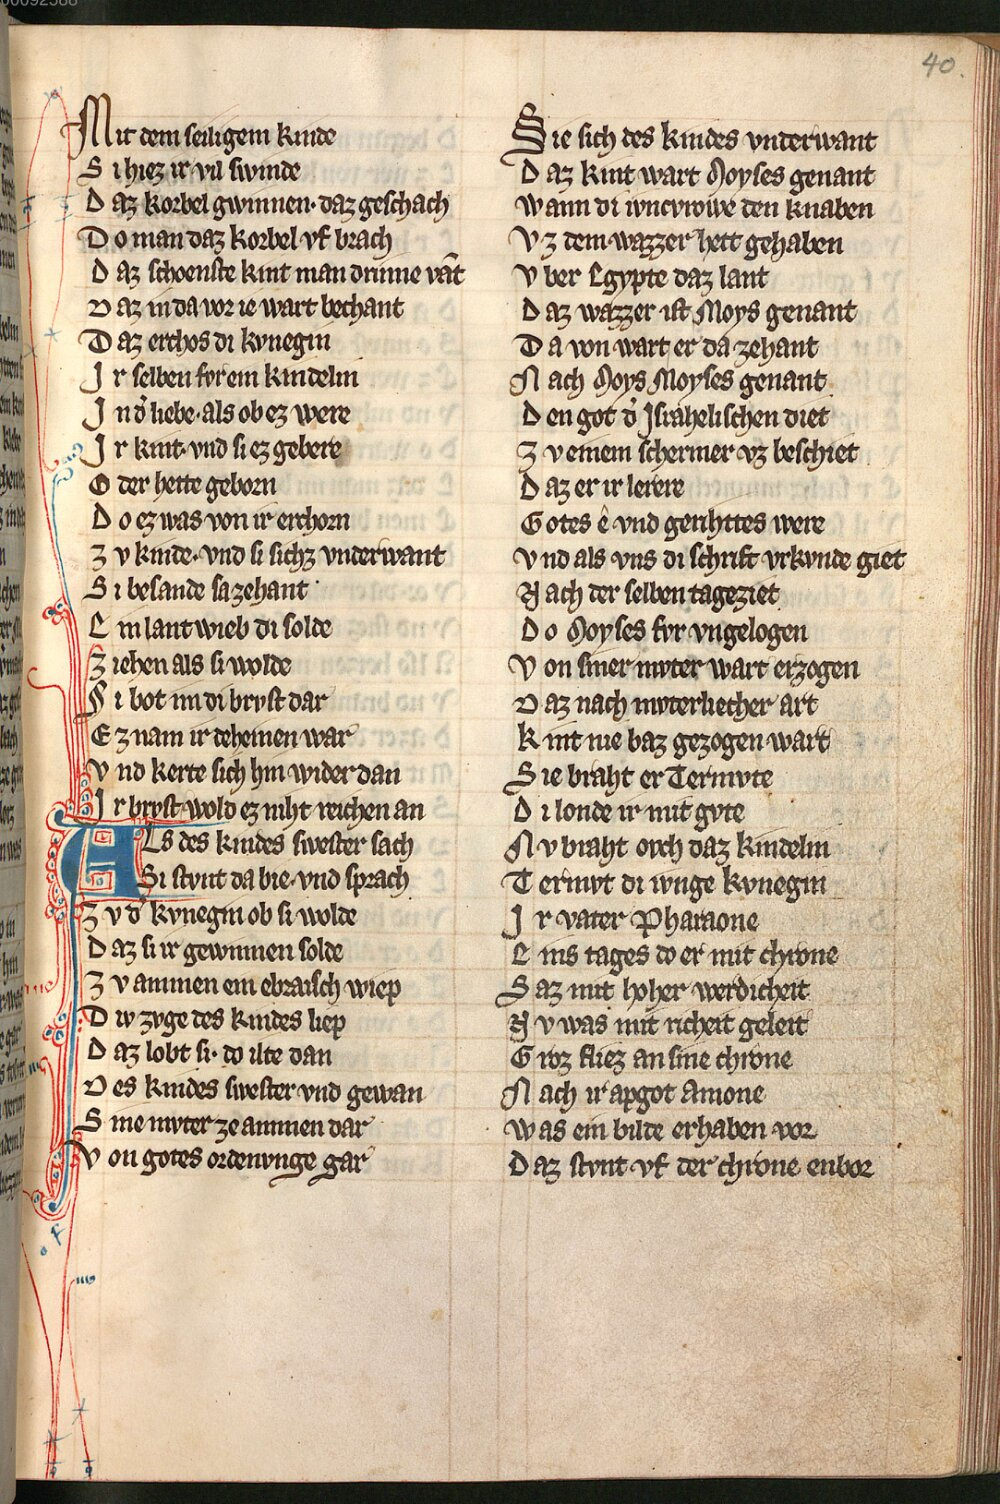 40.
Mit dem seiligem kinde
Si hiez ir vil swinde
Daz korbel gwinnen· daz geschach
Do man daz korbel vf brach
Daz schoenste kint man drinne vāt
Daz in da vor ie wart bechant
Daz erchos di kvnegin
Ir selben fvr ein kindelin
In d̓ liebe· als ob ez were
Ir kint· vnd si ez gebere
Oder hette geborn
Do ez was von ir erchorn
Zv kinde· vnd si sichz vnderwant
Si besande sazehant
Ein lantwieb di solde
Ziehen als si wolde
Si bot im di brvst dar
Ez nam ir deheinen war
Vnd kerte sich hin wider dan
Ir brvst wold ez niht reichen an
Als des kindes swester sach
Si stvnt da bie· vnd sprach
Zv d̓ kvnegin ob si wolde
Daz si ir gewinnen solde
Zv ammen ein ebraisch wiep
Div zvge des kindes liep
Daz lobt si· do ilte dan
Des kindes swester vnd gewan
Sine mvter ze ammen dar
Von gotes ordenvnge gar
Sie sich des kindes vnderwant
Daz kint wart Moyses genant
Wann di ivncvrowe den knaben
Vz dem wazzer hett gehaben
Vber Egypte daz lant
Daz wazzer ist Moys genant
Da von wart er da zehant
Nach Moys Moyses genant
Den got d̓ Israhelischen diet
Zv einem schermer vz beschiet
Daz er ir lerere
Gotes ê vnd gerihttes were
Vnd als vns di schrift vrkvnde giet
Nach der selben tageziet
Do Moyses fvr vngelogen
Von siner mvter wart erzogen
Daz nach mvterliecher art
Kint nie baz gezogen wart
Sie braht er Termvte
Di londe ir mit gvte
Nv braht ovch daz kindelin
Termvt di ivnge kvnegin
Ir vater Pharaone
Eins tages do er mit chrone
Saz mit hoher werdicheit
Nv was mit richeit geleit
Groz fliez an sine chrone
Nach ir apgot Amone
Was ein bilde erhaben vor
Daz stvnt vf der chrone enbor